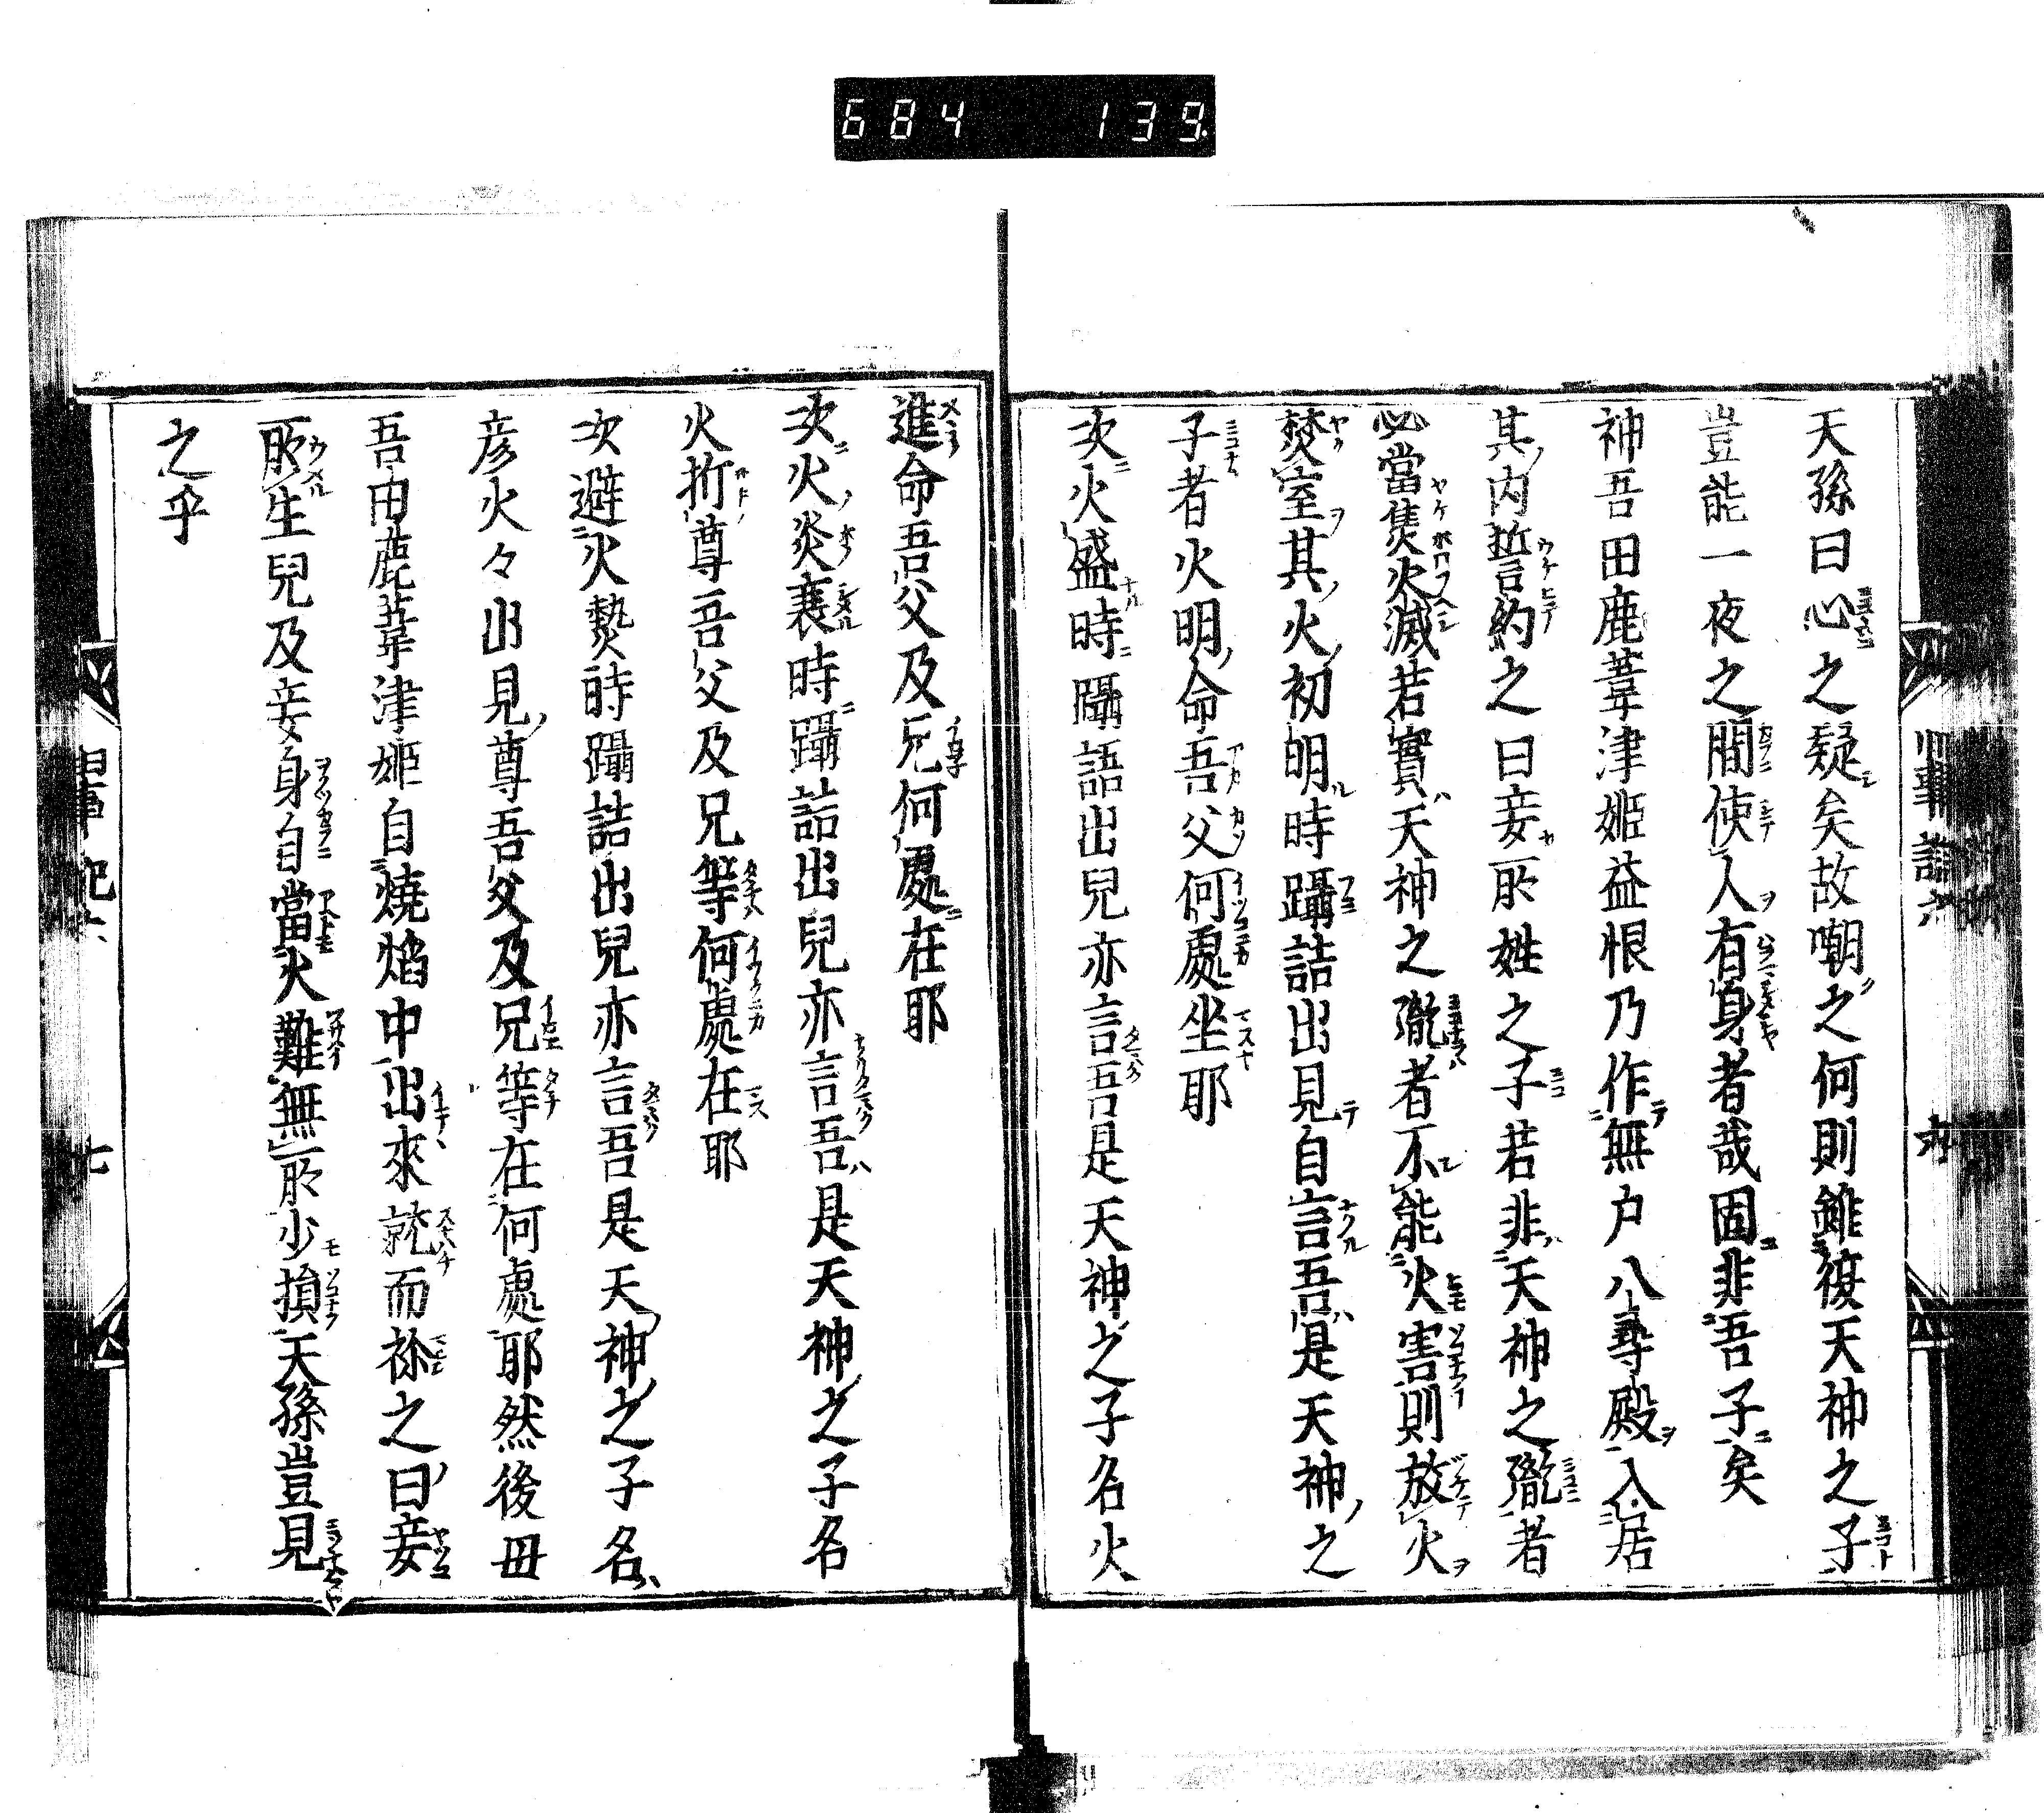 684 139
天孫曰心之疑矣故嘲之何則雖復天神之子
豈能一夜之間使人有身者哉固非吾子矣
神吾田鹿葦津姬益恨乃作無戸八尋殿入居
其内誓約之曰妾所娠之子若非天神之胤者
必當焦火滅若實天神之胤者不能火害則放火
焚室其火初明時躡誥出見自言吾是天神之
子者火明命吾父何處坐耶
次火盛時躡誥出兒亦言吾是天神之子名火
進命吾父及兄何處在耶
次火炎衰時躡誥出兒亦言吾是天神之子名
火折尊吾父及兄等何處在耶
次避火熱時躡誥出兒亦言吾是天神之子名
彦火々出見尊吾父及兄等在何處耶然後母
吾田鹿葦津姬自燒焰中出來就而称之曰妾
所生兒及妾身自當火難無所少損天孫豈見
之乎
旧事紀六
七